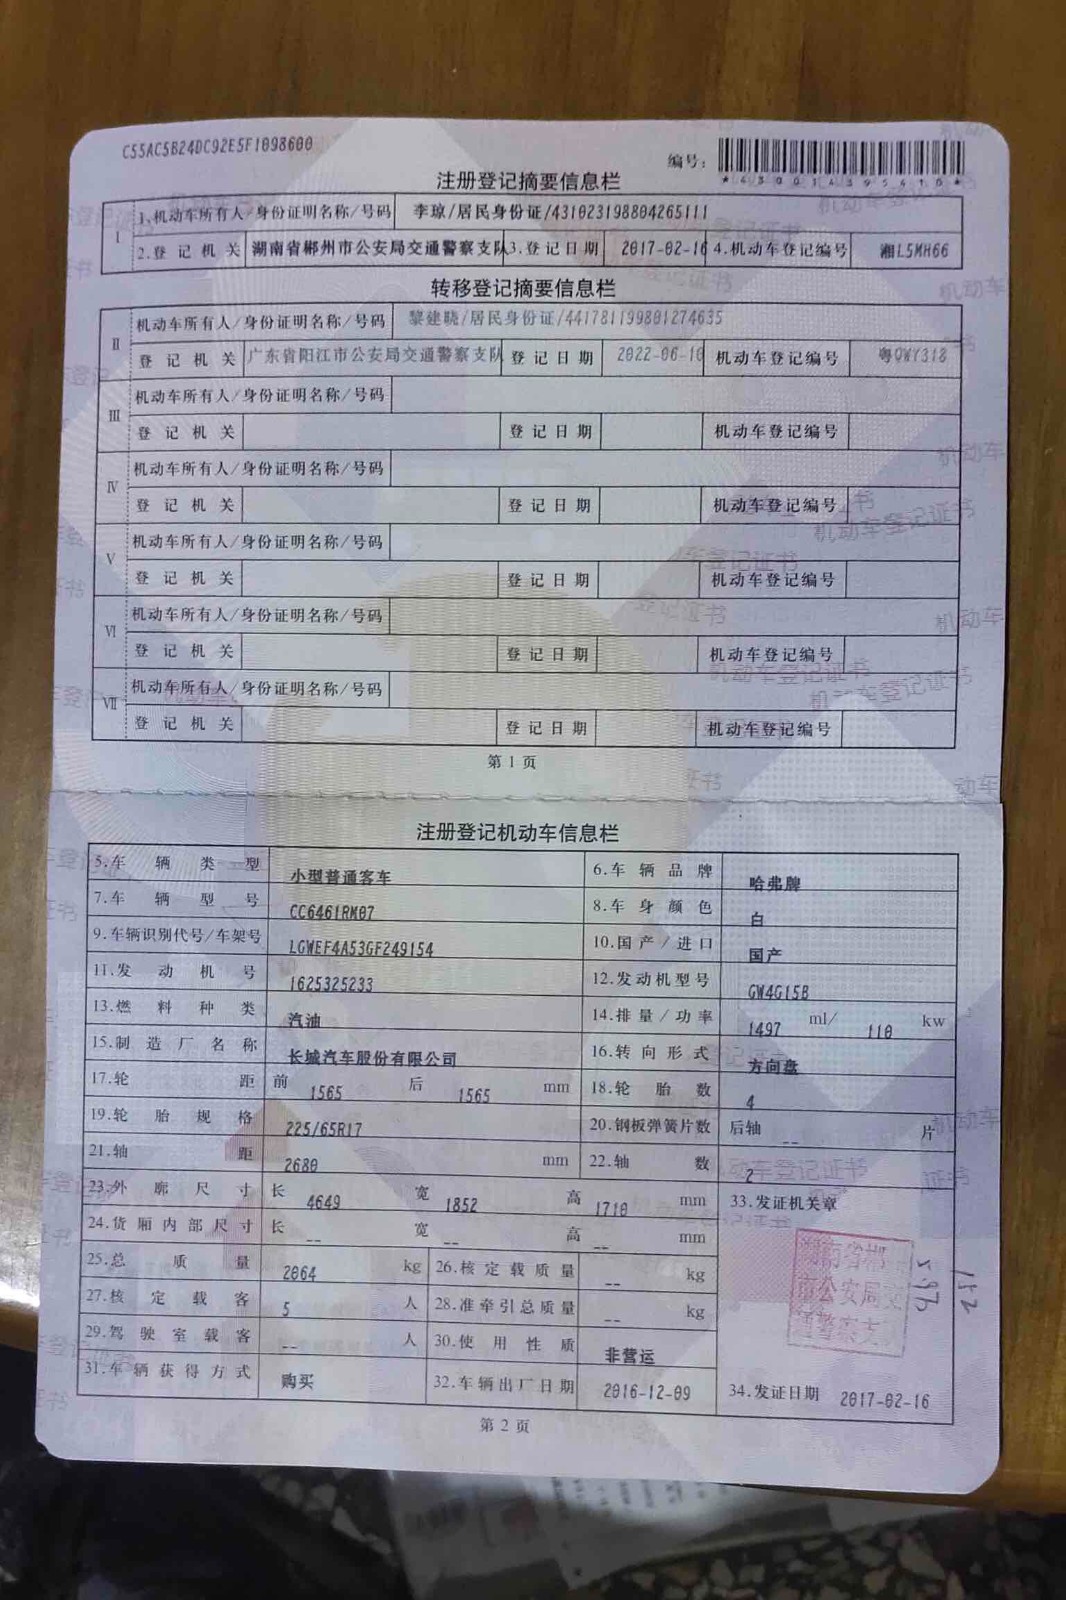 C55AC5B24DC92E5F1098600
编号:
*430014395410*
注册登记摘要信息栏
I 1.机动车所有人/身份证明名称/号码 李琼/居民身份证/431023198804265111
2.登记机关 湖南省郴州市公安局交通警察支队 3.登记日期 2017-02-16 4.机动车登记编号 湘L5MH66
转移登记摘要信息栏
II 机动车所有人/身份证明名称/号码 黎建晓/居民身份证/441781199801274635
登记机关 广东省阳江市公安局交通警察支队 登记日期 2022-06-10 机动车登记编号 粤QWY318
III 机动车所有人/身份证明名称/号码
登记机关 登记日期 机动车登记编号
IV 机动车所有人/身份证明名称/号码
登记机关 登记日期 机动车登记编号
V 机动车所有人/身份证明名称/号码
登记机关 登记日期 机动车登记编号
VI 机动车所有人/身份证明名称/号码
登记机关 登记日期 机动车登记编号
VII 机动车所有人/身份证明名称/号码
登记机关 登记日期 机动车登记编号
第1页
注册登记机动车信息栏
5.车辆类型 小型普通客车 6.车辆品牌 哈弗牌
7.车辆型号 CC6461RM07 8.车身颜色 白
9.车辆识别代号/车架号 LGWEF4A53GF249154 10.国产/进口 国产
11.发动机号 1625325233 12.发动机型号 GW4G15B
13.燃料种类 汽油 14.排量/功率 1497 ml/ 110 kw
15.制造厂名称 长城汽车股份有限公司 16.转向形式 方向盘
17.轮距 前 1565 后 1565 mm 18.轮胎数 4
19.轮胎规格 225/65R17 20.钢板弹簧片数 后轴 -- 片
21.轴距 2680 mm 22.轴数 2
23.外廓尺寸 长 4649 宽 1852 高 1710 mm 33.发证机关章
24.货厢内部尺寸 长 -- 宽 -- 高 -- mm
25.总质量 2064 kg 26.核定载质量 -- kg
湖南省郴
市公安局交
通警察支
27.核定载客 5 人 28.准牵引总质量 -- kg
29.驾驶室载客 -- 人 30.使用性质 非营运
31.车辆获得方式 购买 32.车辆出厂日期 2016-12-09 34.发证日期 2017-02-16
第2页